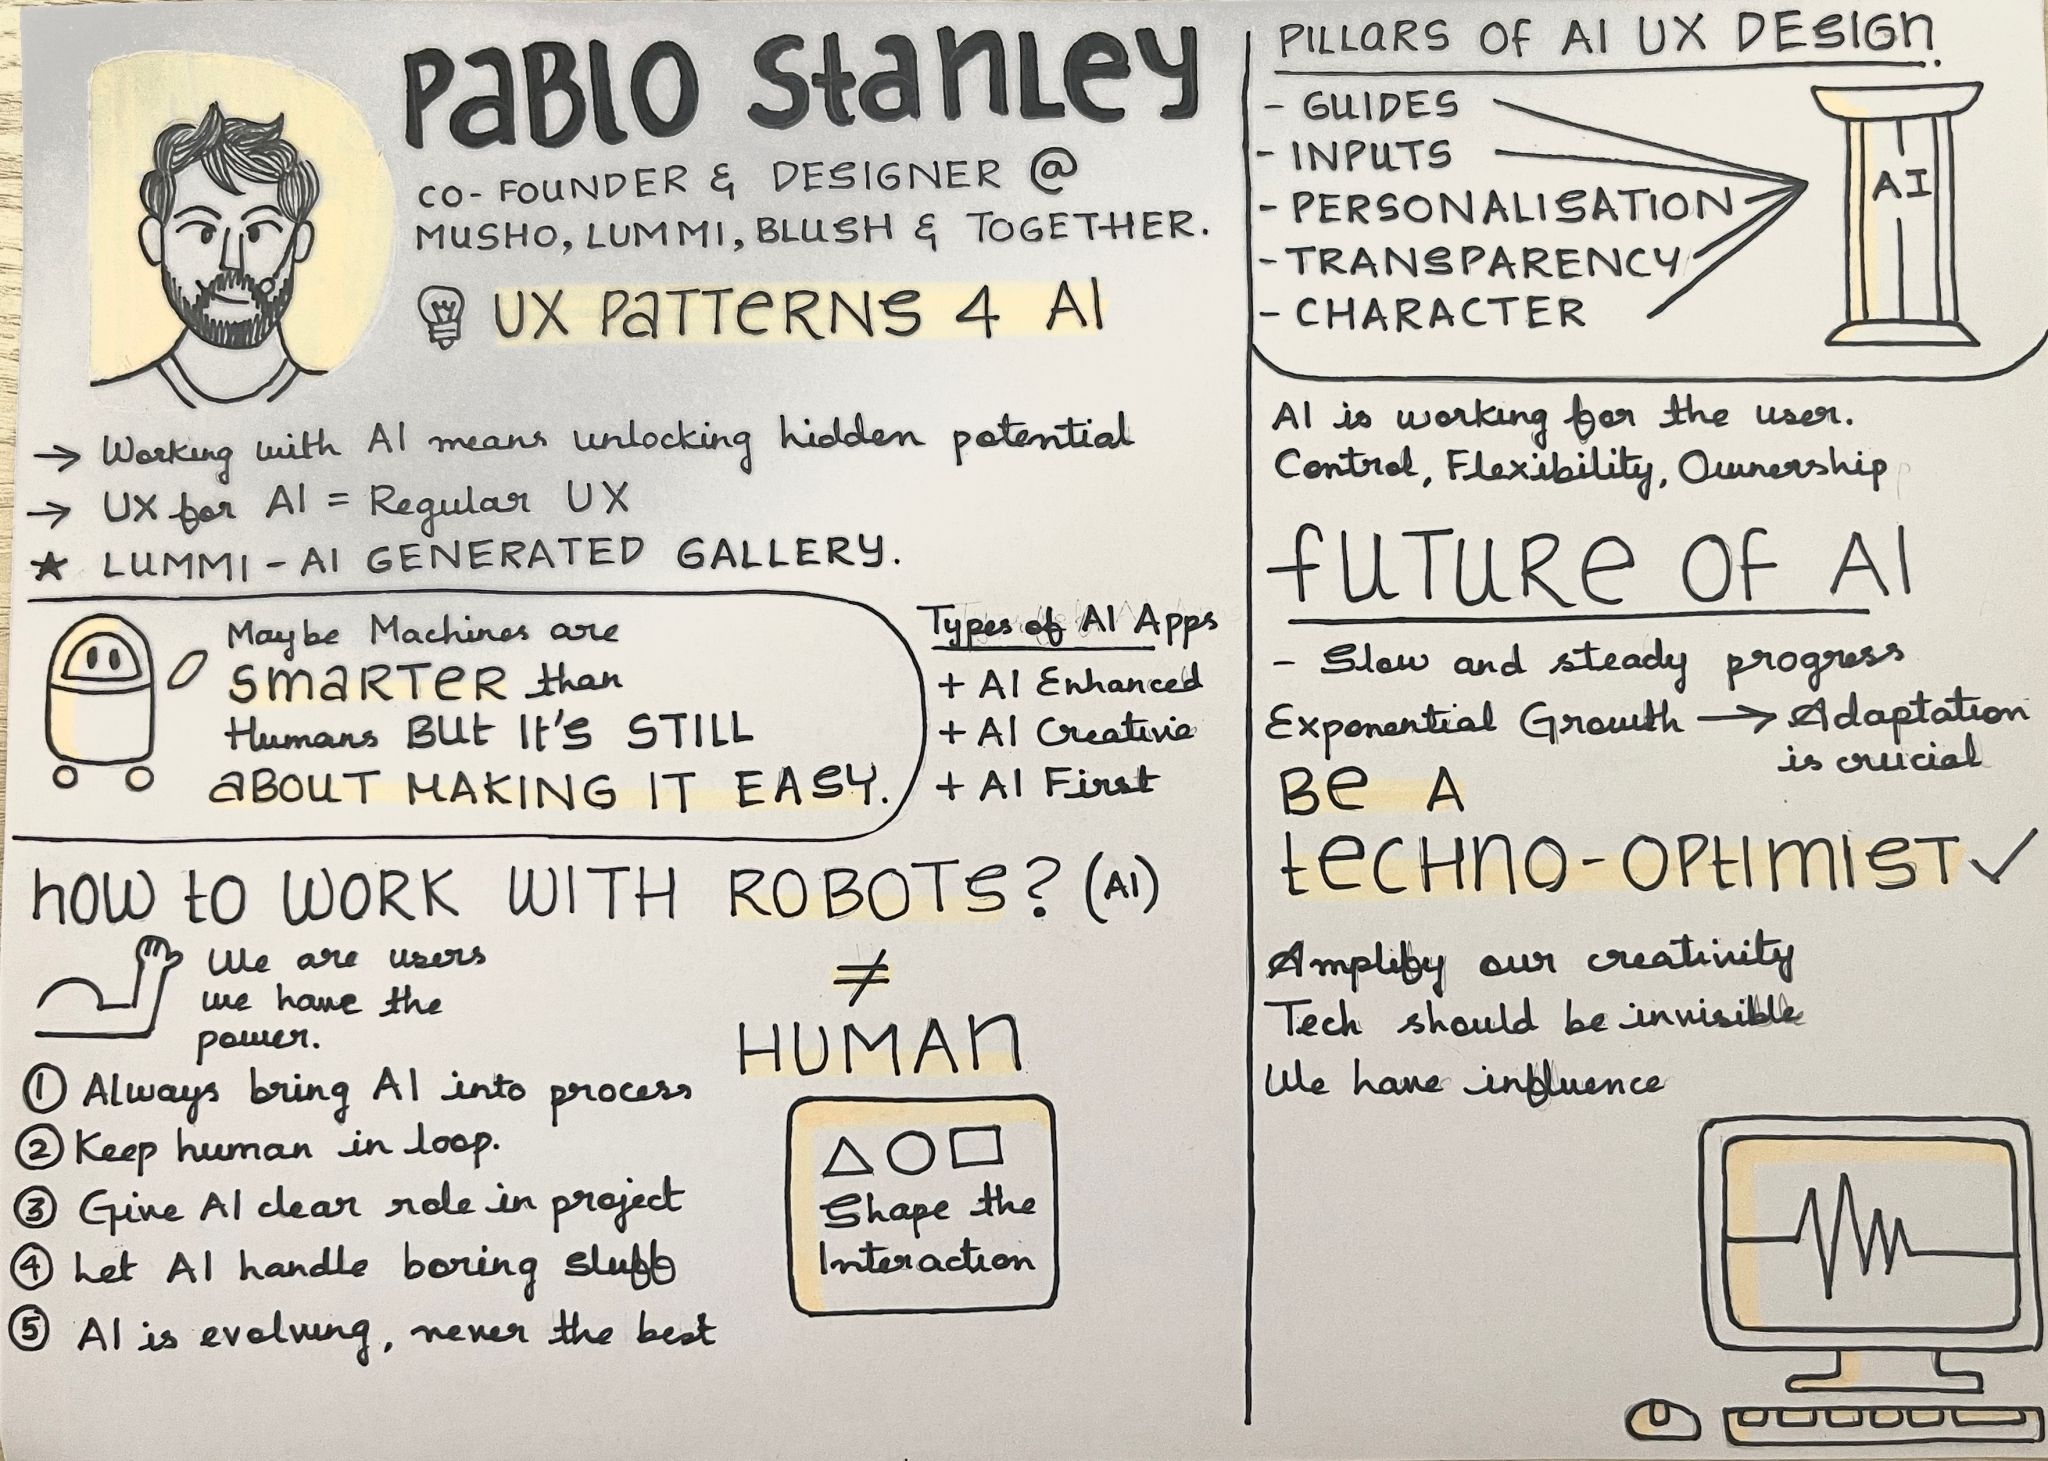 PABLO STANLEY
CO-FOUNDER & DESIGNER @
MUSHO, LUMMI, BLUSH & TOGETHER.
UX PATTERNS 4 AI
→ Working with AI means unlocking hidden potential
→ UX for AI = Regular UX
★ LUMMI - AI GENERATED GALLERY.
Maybe Machines are
SMARTER than
Humans BUT IT'S STILL
ABOUT MAKING IT EASY.
Types of AI Apps
+ AI Enhanced
+ AI Creative
+ AI First
HOW TO WORK WITH ROBOTS? (AI)
≠
HUMAN
We are users
we have the
power.
① Always bring AI into process
② Keep human in loop.
③ Give AI clear role in project
④ Let AI handle boring stuff
⑤ AI is evolving, never the best
Shape the
Interaction
PILLARS OF AI UX DESIGN.
- GUIDES
- INPUTS
- PERSONALISATION
- TRANSPARENCY
- CHARACTER
AI
AI is working for the user.
Control, Flexibility, Ownership
FUTURE OF AI
- Slow and steady progress
Exponential Growth → Adaptation
is crucial
BE A
TECHNO-OPTIMIST ✓
Amplify our creativity
Tech should be invisible
We have influence